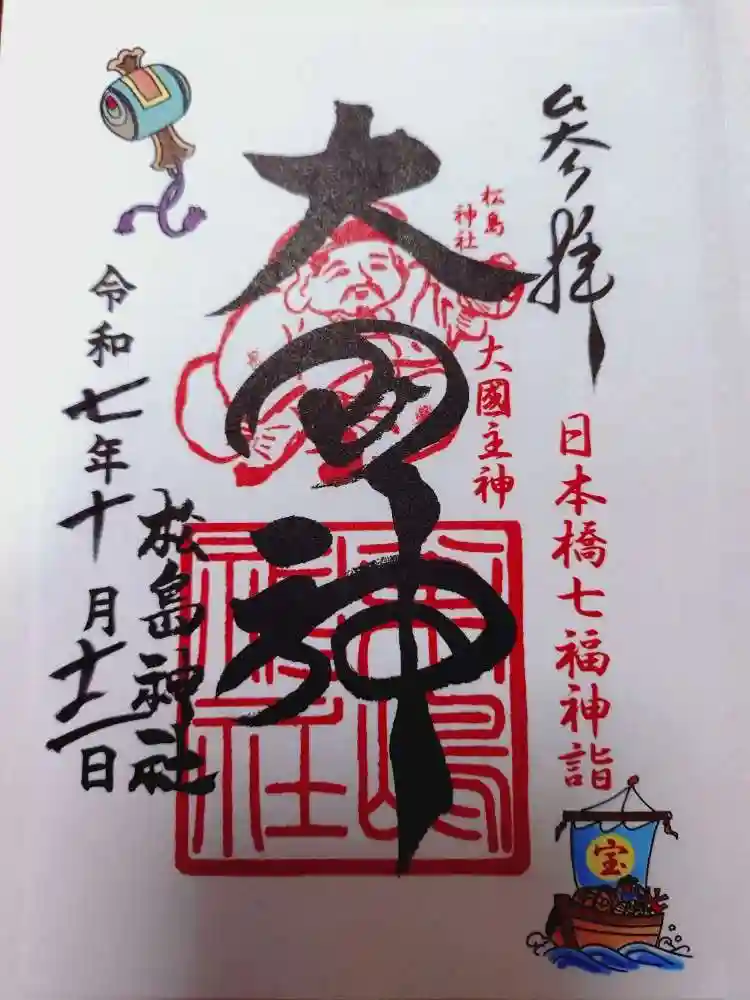 参拝
日本橋七福神詣
松島
神社
大國主神
大国神
松島神社
松島神社
令和七年十月十二日
宝